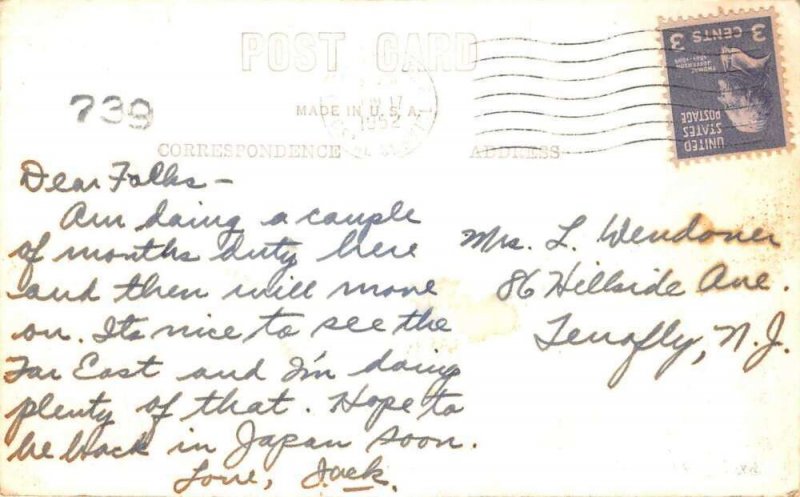 POST CARD
739
MADE IN U.S.A.
17
1952
CORRESPONDENCE
ADDRESS
3 CENTS 3
THOMAS JEFFERSON
UNITED STATES POSTAGE
Dear Folks -
Am doing a couple
of months duty here
and then will move
on. Its nice to see the
Far East and I'm doing
plenty of that. Hope to
be back in Japan soon.
Love, Jack.
Mrs. L. Wendover
86 Hillside Ave.
Tenafly, N.J.